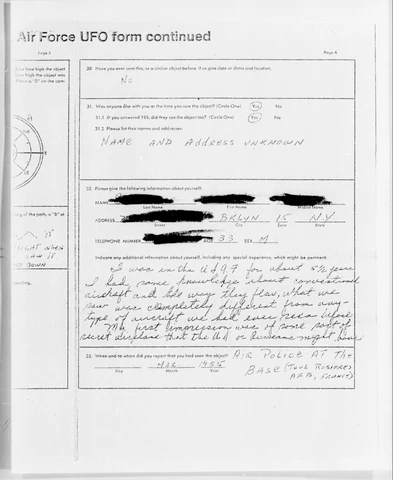 Air Force UFO form continued
Page 3
Page 4
30. Have you ever seen this, or a similar object before. If so give date or dates and location.
No
31. Was anyone else with you at the time you saw the object? (Circle One) Yes No
31.1 If you answered YES, did they see the object too? (Circle One) Yes No
31.2 Please list their names and addresses:
NAME AND ADDRESS UNKNOWN
32. Please give the following information about yourself:
NAME
Last Name First Name Middle Name
ADDRESS BKLYN 15 N.Y.
Street City Zone State
TELEPHONE NUMBER 33 SEX M
Indicate any additional information about yourself, including any special experience, which might be pertinent.
I was in the U.S.A.F for about 5½ years
I had some knowledge about conventional
aircraft and the way they flew, what we
saw was completely different from any
type of aircraft we had ever seen before
My first impression was of some sort of
secret airplane that the or Russians might have
33. When and to whom did you report that you had seen the object? AIR POLICE AT THE
1955 BASE (TOUL ROSIERES
Day Month Year AFB, FRANCE)
A
"A"
RIGHT WHEN
SAW IT
ND DOWN